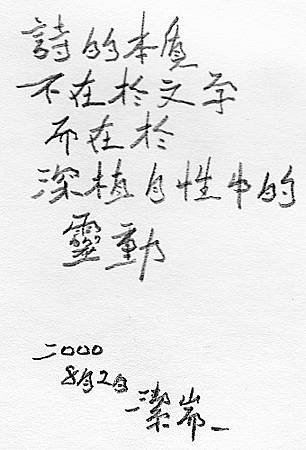 詩的本質
不在於文字
而在於
深植自性中的
靈動
二000
8月2日
潔岩